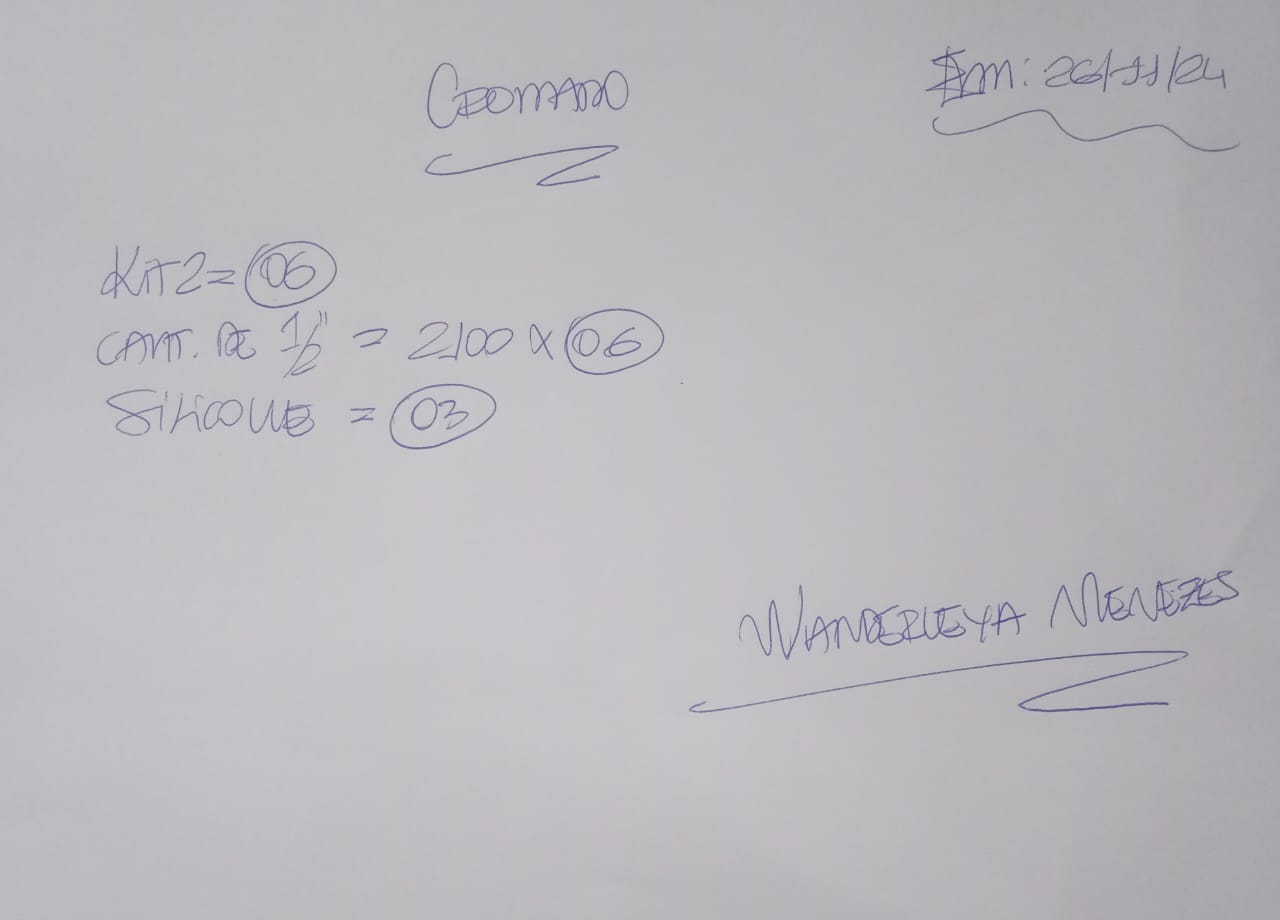 CROMADO
Em: 26/11/24
KIT 2 = 06
CANT. DE 1/2" = 2100 X 06
SILICONE = 03
WANDERLEYA MENEZES